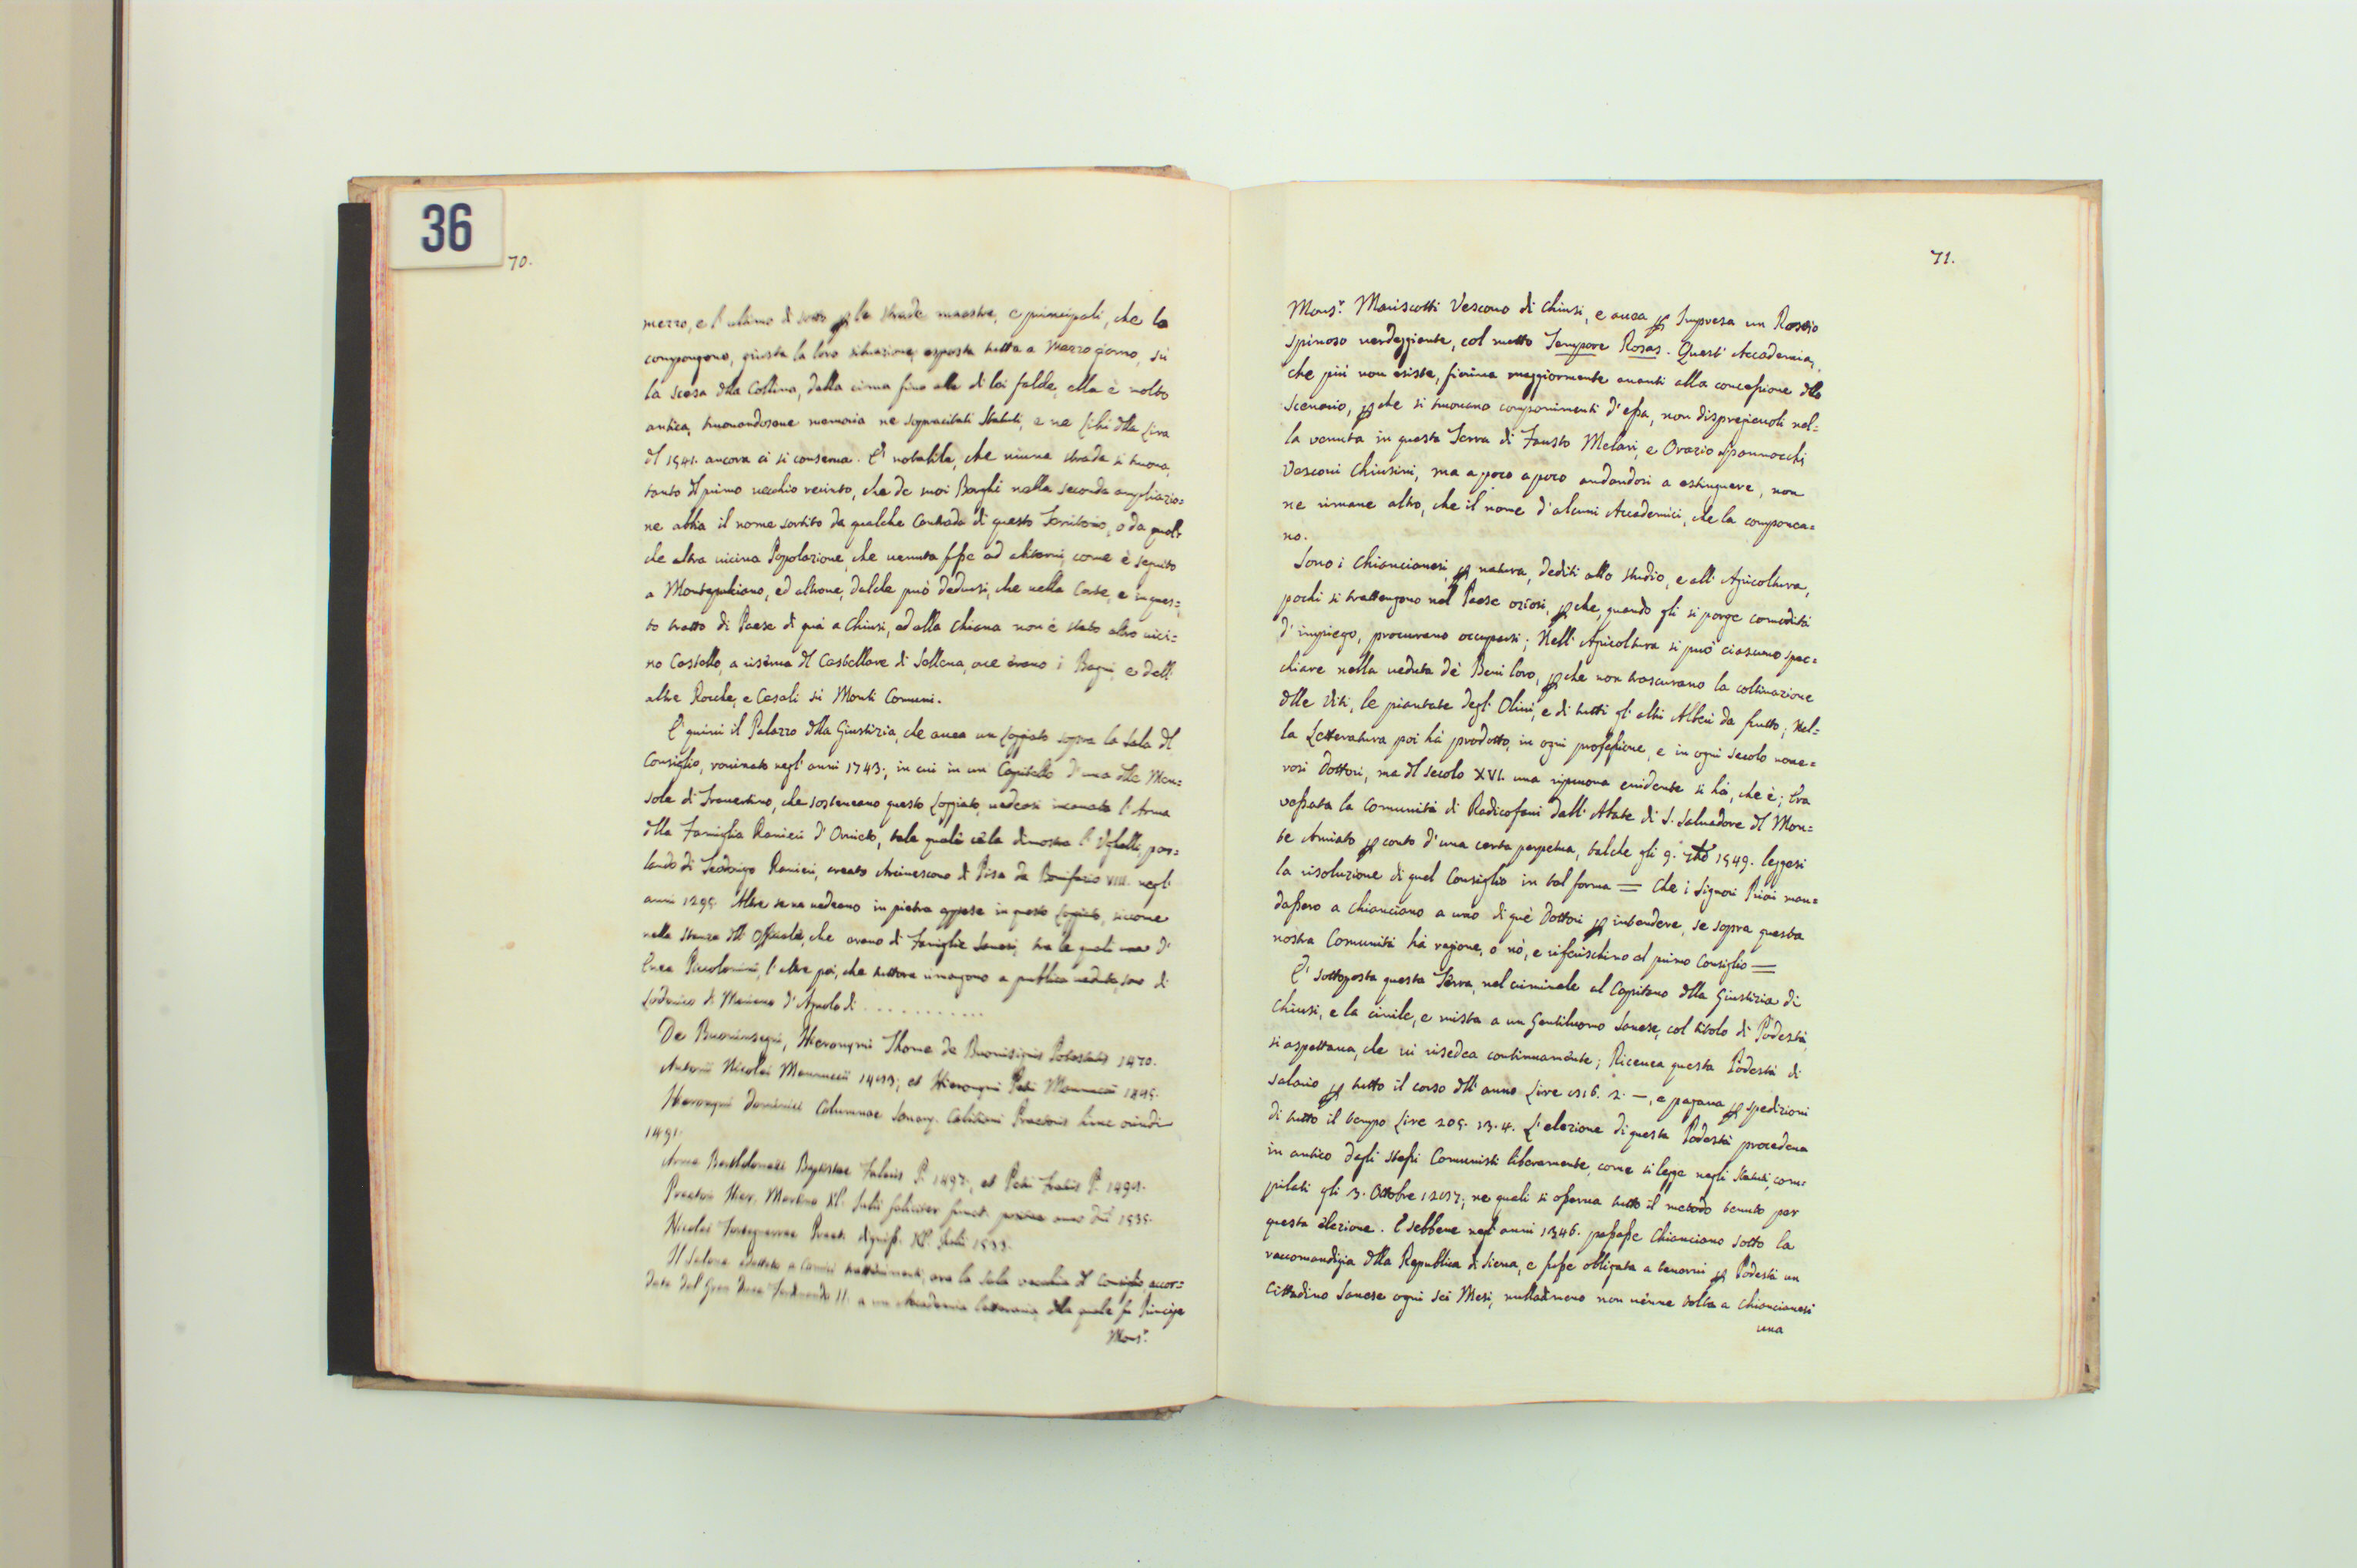 36
70.
mezzo, e l'ultimo di sotto p le strade maestre, e principali, che la
compongono, giusta la loro situazione esposta tutta a Mezzo giorno, sú
la scesa dlla Collina, dalla cima fino alle di lei falde, ella è molto
antica, trovandosene memoria ne sopracitati Statuti, e ne Libri dlla Lira
dl 1541. ancora ci si conserva. E' notabile, che niuna strada si trova,
tanto dl primo vecchio recinto, che de suoi Borghi nella seconda ampliazio=
ne abbia il nome sortito da qualche Contrada di questo Territorio, o da qual=
che altra vicina Popolazione, che venuta fosse ad abitarvi, come è seguito
a Montepulciano, ed altrove, dalche può dedursi, che nella Corte, e in ques=
to tratto di Paese di quà a Chiusi, ed alla Chiana non è stato altro vici=
no Castello, a riserva dl Castellare di Sellena, ove èrano i Bagni, e dell'
altre Rocche, e Casali sú Monti Comuni.
E' quivi il Palazzo dlla Giustizia, che avea un Loggiato sopra la Sala dl
Consiglio, rovinato negl'anni 1743., in cui in un Capitello d'una dlle Men=
sole di Travertino, che sostenevano questo Loggiato, vedeasi incavata l'Arma
dlla Famiglia Ranieri d'Orvieto, tale quale cèla dimostra l'Ughelli, par=
lando di Teodorigo Ranieri, creato Arcivescovo di Pisa da Bonifazio VIII. negl'
anni 1295. Altre se ne vedeano in pietra appese in questo Loggiato, siccome
nelle Stanze dll' Officiale, che erano di Famiglie Sanesi, tra le quali una d'
Enea Piccolomini, l'altre poi, che tuttora rimangono a pubblica veduta, sono di
Lodovico di Mariano d'Agnolo di . . . . . . . . . . .
De Buoninsegni, Hieronymi Thome de Buonisignis Potestatis 1470.
Antonii Nicolai Mannuccii 1493; et Hieronymi Petri Mannuccii 1495.
Hieronymi Dominici Columnae Praetoris
1491.
Arma Bartholomaei Baptistae P. 1497., et Petri P.
Praetor Hier. Martino Kl. Julii feliciter 1535.
Nicolai Praet. Kl. Julii 1533.
Il Salone addetto a Comici trattenimenti, era la Sala vecchia dl Consiglio, accor=
data dal Gran Duca Ferdinando II. a un'Accademia Letteraria, dlla quale fu Principe
Mons.r
71.
Mons.r Mariscotti Vescovo di Chiusi, e avea p Impresa un Rosaio
spinoso verdeggiante, col motto Tempore Rosas. Quest'Accademia,
che più non esiste, fioriva maggiormente avanti alla concessione dllo
Scenario, pche si trovano componimenti d'essa, non dispregievoli nel=
la venuta in questa Terra di Fausto Melari, e Orazio Spannocchi,
Vescovi Chiusini, ma a poco a poco andandosi a estinguere, non
ne rimane altro, che il nome d'alcuni Accademici, che la componea=
no.
Sono i Chiancianesi, p natura, dediti allo studio, e all'Agricoltura,
pochi si trattengono nel Paese oziosi, pche, quando gli si porge comodità
d'impiego, procurano occuparsi; Nell'Agricoltura si può ciascuno spec=
chiare nella veduta dè Beni loro, pche non trascurano la coltivazione
dlle Viti, le piantate degl'Olivi, e di tutti gl'altri Alberi da frutto; Nel=
la Letteratura poi há prodotto, in ogni professione, e in ogni secolo nume=
rosi Dottori, ma dl secolo XVI. una riprova evidente si há, che è; Era
vessata la Comunità di Radicofani dall'Abate di S. Salvadore dl Mon=
te Amiato p conto d'una certa perpetua, talche gli 9. 1549. leggesi
la risoluzione di quel Consiglio in tal forma = Che i Signori Priori man=
dassero a Chianciano a uno di què Dottori p intendere, se sopra questa
nostra Comunità há ragione, o nò, e riferischino al primo Consiglio =
E' sottoposta questa Terra, nel criminale al Capitano dlla Giustizia di
Chiusi, e la civile, e mista a un Gentiluomo Sanese, col titolo di Podestà
si aspettava, che vi risedea continuamènte; Ricevea questa Podestà di
salario p tutto il corso dll'anno Lire 1516. 2. -, e pagava p spedizioni
di tutto il tempo Lire 205. 13. 4. L'elezione di questa Podestà procedeva
in antico dagli stessi Comunisti liberamente, come si legge negli Statuti, com=
pilati gli 3. Ottobre 1287; ne quali si osserva tutto il metodo tenuto per
questa elezione. E sebbene negl'anni 1346. passasse Chianciano sotto la
raccomandigia dlla Republica di Siena, e fosse obligata a tenervi p Podestà un
Cittadino Sanese ogni sei Mesi, nulladimeno non vènne tolta a Chiancianesi
una